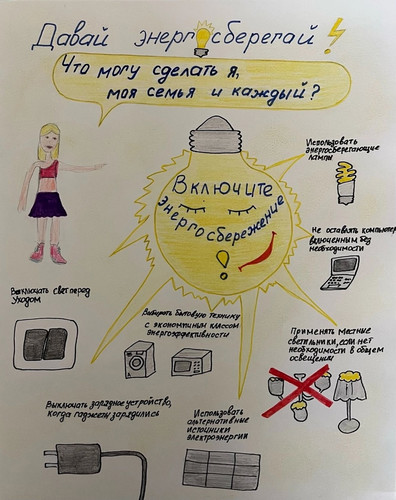 Давай энергосберегай!
Что могу сделать я,
моя семья и каждый?
Включите
энергосбережение
Использовать
энергосберегающие
лампы
Не оставлять компьютер
включенным без
необходимости
Выключать свет перед
уходом
Выбирать бытовую технику
с экономичным классом
энергоэффективности
Применять местные
светильники, если нет
необходимости в общем
освещении
Выключать зарядное устройство,
когда гаджеты зарядились
Использовать
альтернативные
источники
электроэнергии